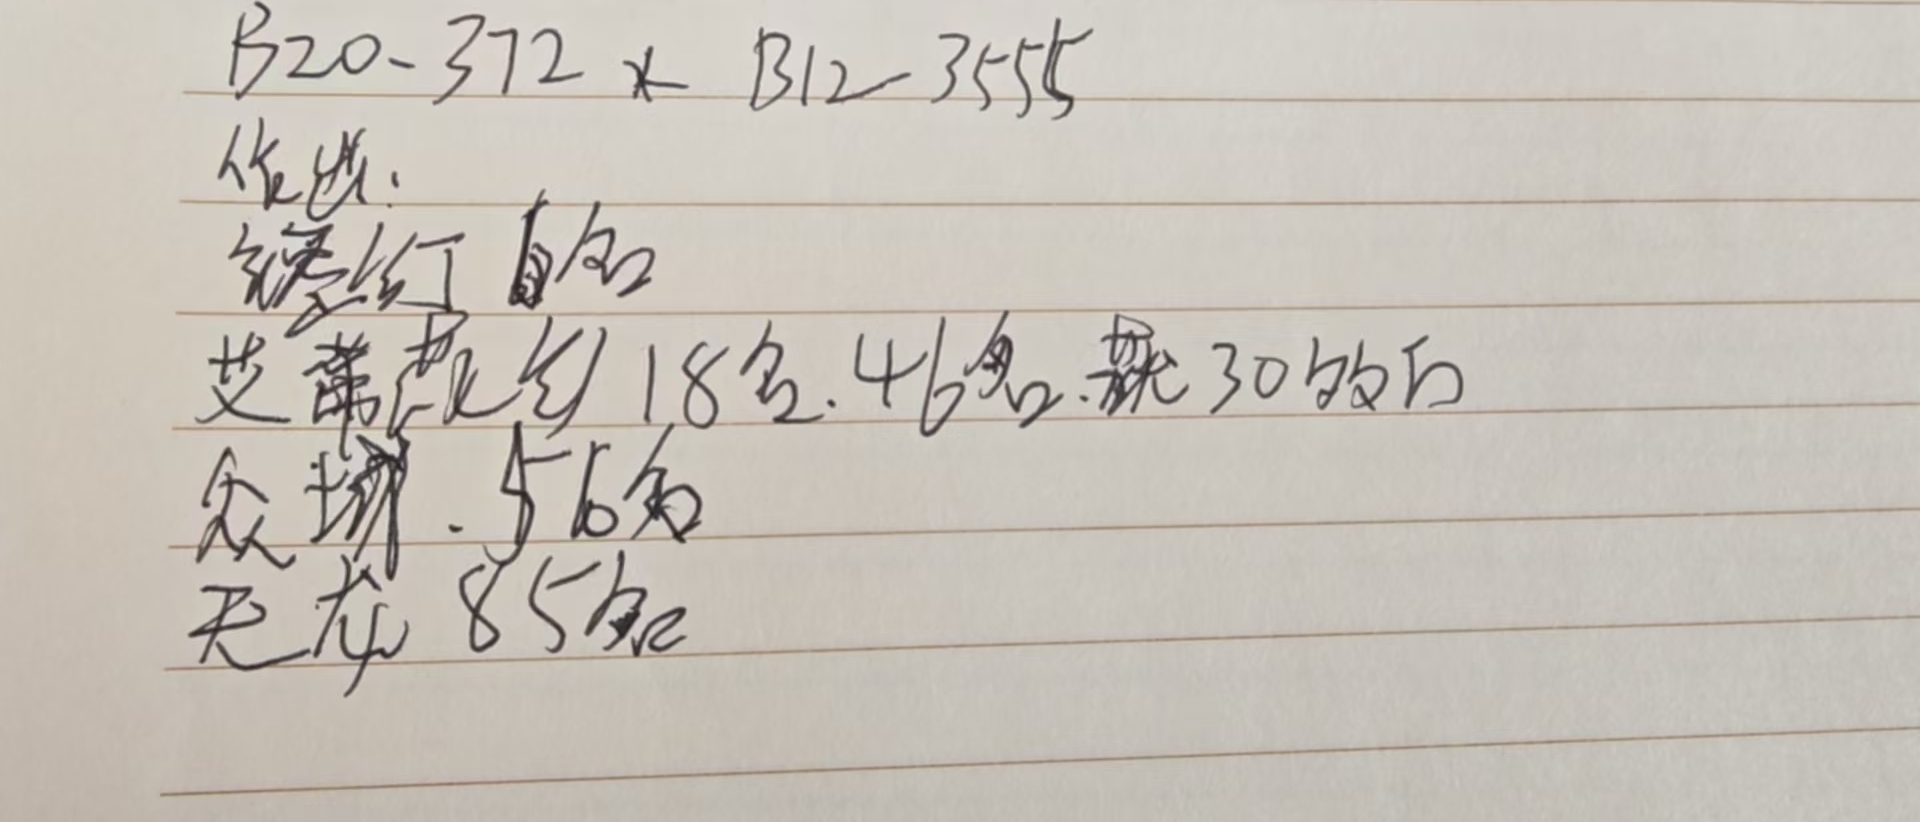 B20-372 x B12-3555
作出:
红 1名
艾蒂 18名.46名.获30的白
众城.56名
天龙 85名